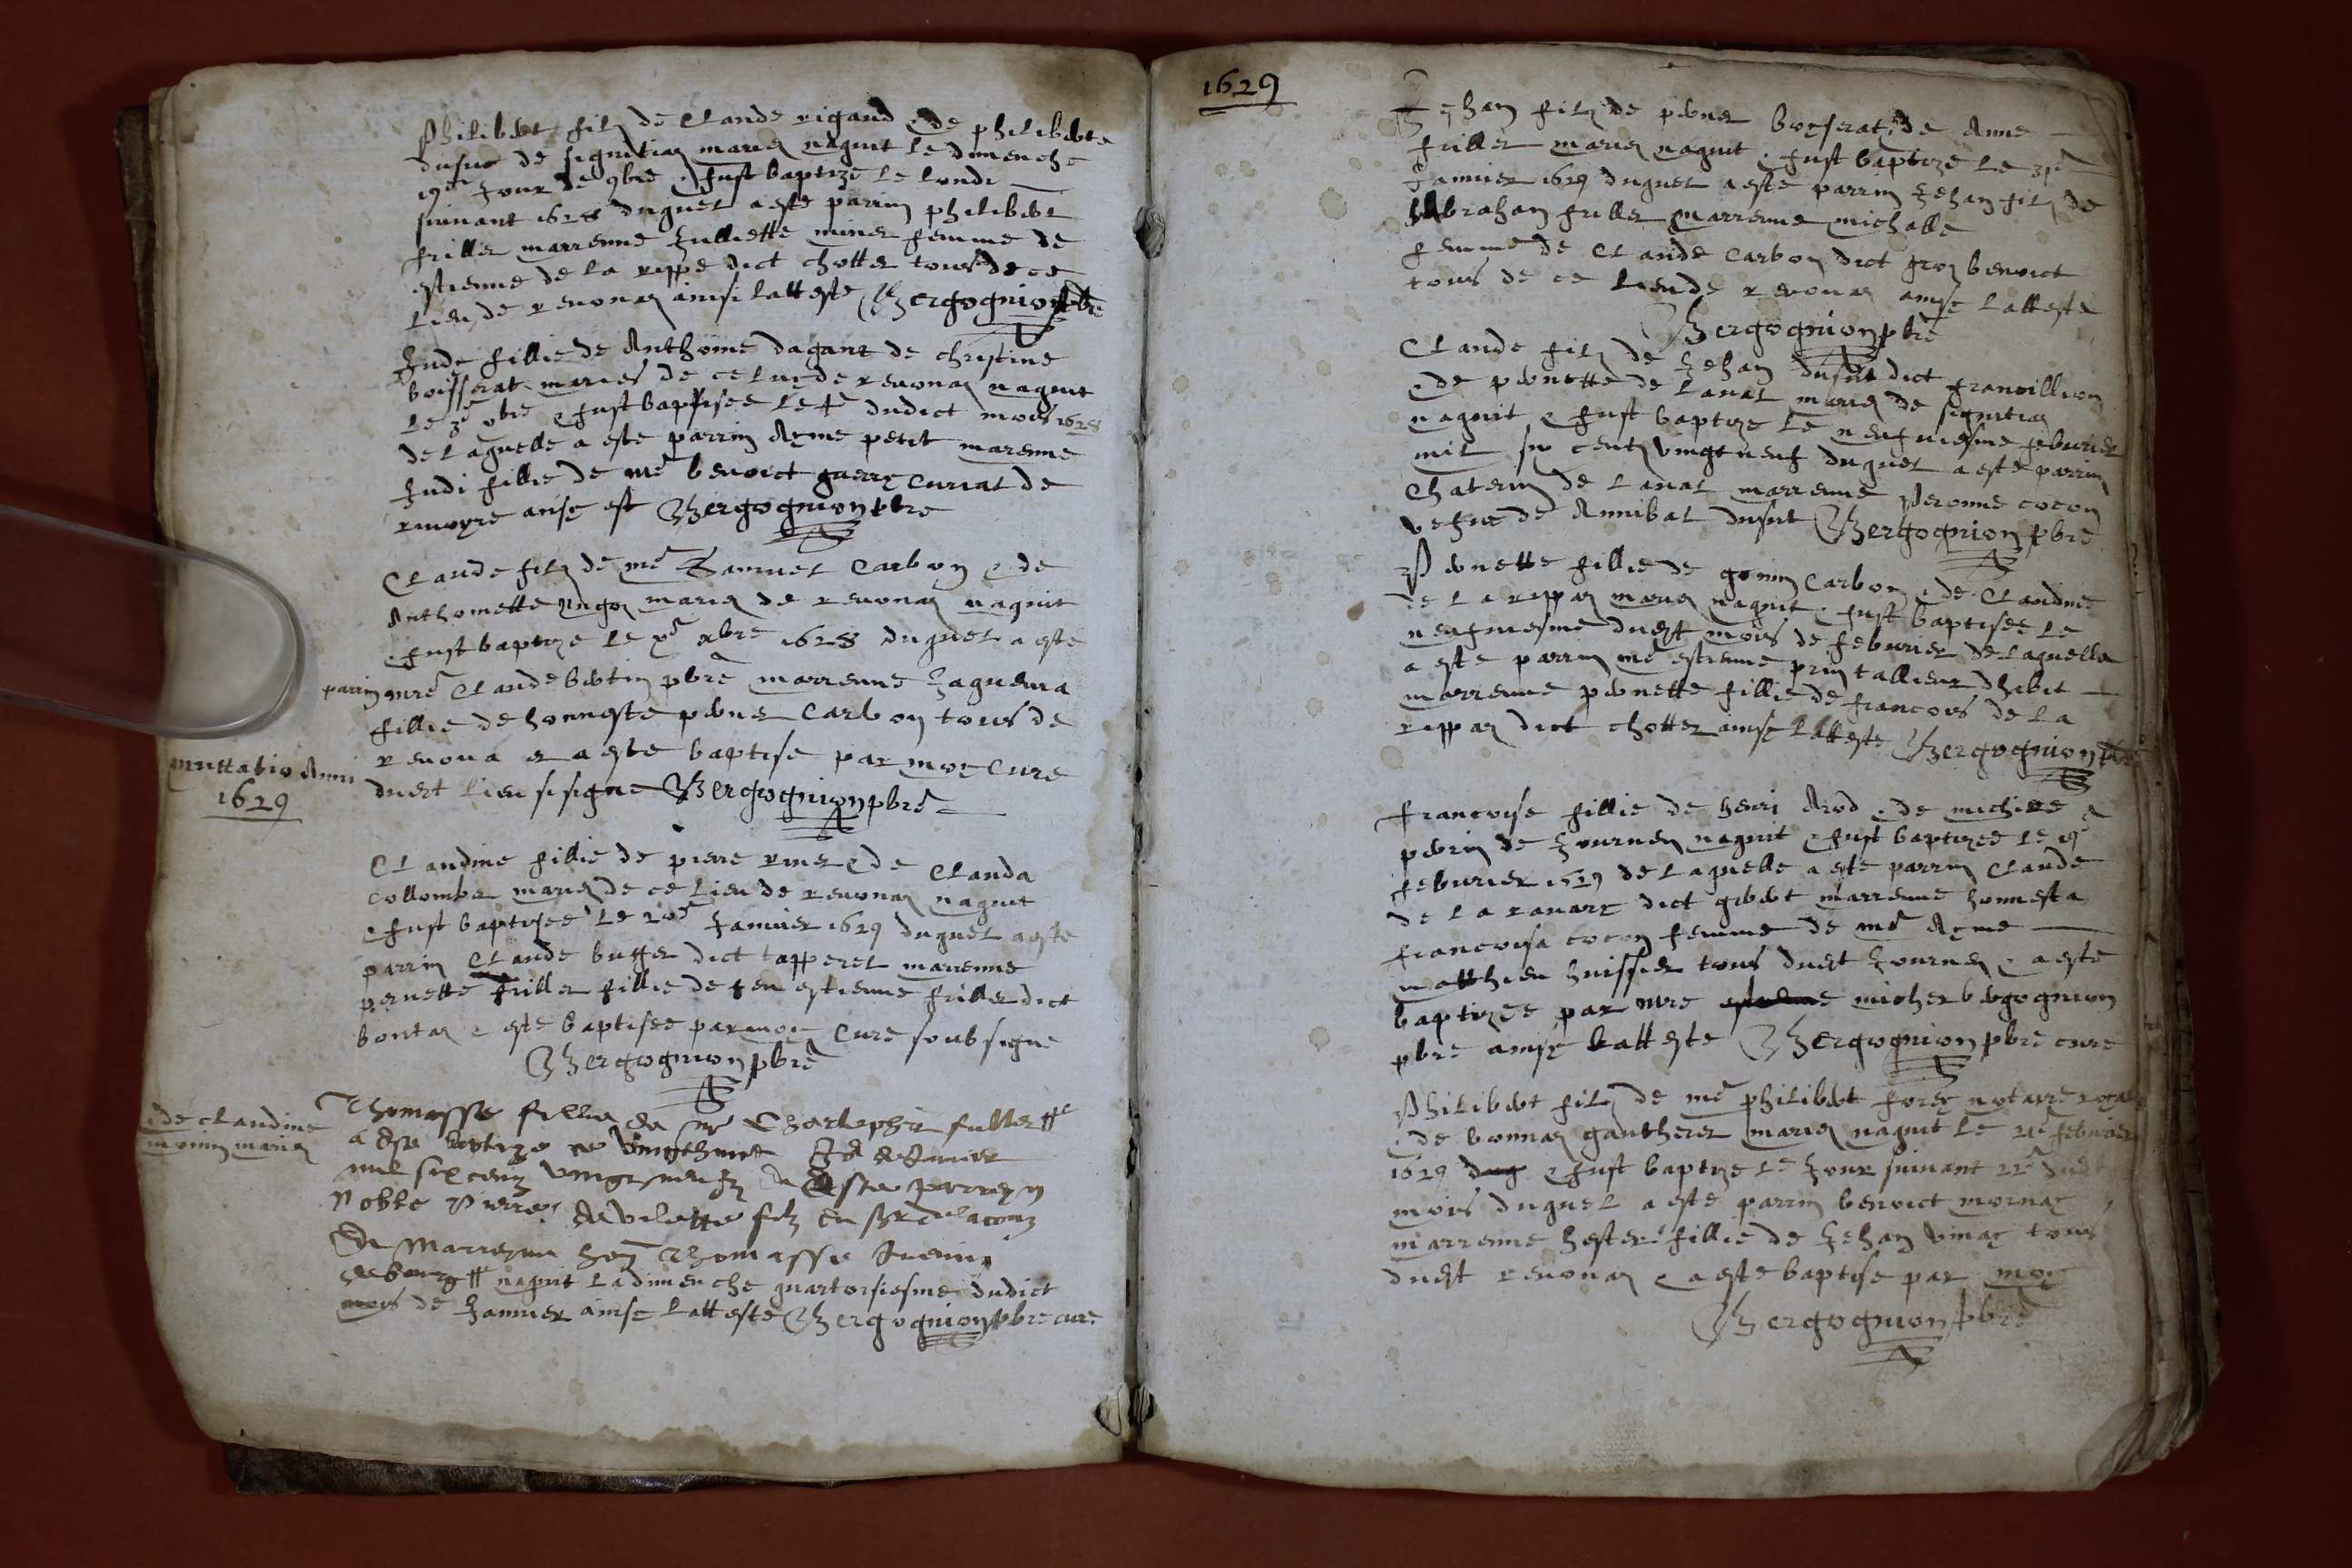 Philibert filz de Claude rigaud & de philiberte
dusuc de signitias mariez naquit le dimenche
19e Jour de 9bre & fust baptizé le lundi
suivant 1628 duquel a esté parrin philibert
frillet marrenne Jullette muner femme de
estienne de la rippe dict chotter tous de ce
lieu de revonas ainsi latteste Bergognion pbre
Jude fillie de Anthoine dagant de christine
boisserat mariés de ce lieu de revonas naquit
le 3e xbre & fust baptisée le 4e dudict mois 1628
de laquelle a este parrin Ayme petit marenne
Judi fillie de me benoict guerre curial de
ainse est Bergognion pbre
Claude filz de me Samuel Carbon & de
Anthoinette mariez de revonas naquit
& fust baptize le xe xbre 1628 duquel a este
parrin mre Claude bertin pbre marrenne Jaquema
fillie de honneste perner Carbon tous de
revona & a este baptise par moy Curé
duest lieu sisigne Bergognion pbre
muttatio Anni
1629
Claudine fillie de pierre & de Clauda
Collomber mariez de ce lieu de revonas naquit
& fust baptizée le Janvier 1629 duquel a este
parrin Claude buffer dict tapperel marrenne
pernette friller fillie de feu estienne friller dict
bontas & este baptisée par moy Curé soubsigne
Bergognion pbre
& de Claudine
monin mariez
Thomasse fillie de mr Christophle fuller
a este baptize le vingthuict de Janvier
mil six centz vingt neufz a Este parrin
Noble Pierre de vilette filz du sr de lacouz
Et Marrenne hon Thomasse
naquit la dimenche quatorsiesme dudict
mois de Janvier ainse latteste Bergognion pbre curé
1629
Jehan filz de perner boyserat & de Anne
friller mariez naquit & fust baptize le 31e
Janvier 1629 duquel a este parrin Jehan filz de
Abraham friller & marrenne michalle
femme de Claude Carbon dict gros benoict
tous de ce lieu de revonas ainse latteste
Bergognion pbre
Claude filz de Jehan dusut dict francillion
& de pernette de lanal mariez de signitias
naquit & fust baptize le neufviesme febvrier
mil six centz vingt neuf duquel a este parrin
Chaterin de lanal marrenne Peronne cocon
vefve de Annibal dusut Bergognion pbre
Pernette fillie de gonin Carbon & de Claudine
de la rippaz mariez naquit & fust baptisée le
neufviesme duest mois de febvrier de laquelle
a este parrin me estienne prin tallieur dhabit
marrenne pernette fillie de francois de la
rippaz dict chotter ainse latteste Bergognion pbre
francoise fillie de henri Arod & de michiee
perrin de Journez naquit & fust baptizée le 19e
febvrier 1629 de laquelle a este parrin Claude
de la ravare dict gibert marrenne honnesta
francoisa cocon femme de me Ayme
matthieu huissier tous duest Journez & a este
baptizée par mre micher bergognion
pbre ainse latteste Bergognion pbre curé
Philibert filz de me philibert forey notaire royal
& de bonnaz gautherer mariez naquit le 21e febvrier
1629 & fust baptize le Jour suivant 22e dudt
mois duquel a este parrin benoict mornay
marrenne hester fillie de Jehan vinay tous
duest revonas & a este baptise par moy
Bergognion pbre